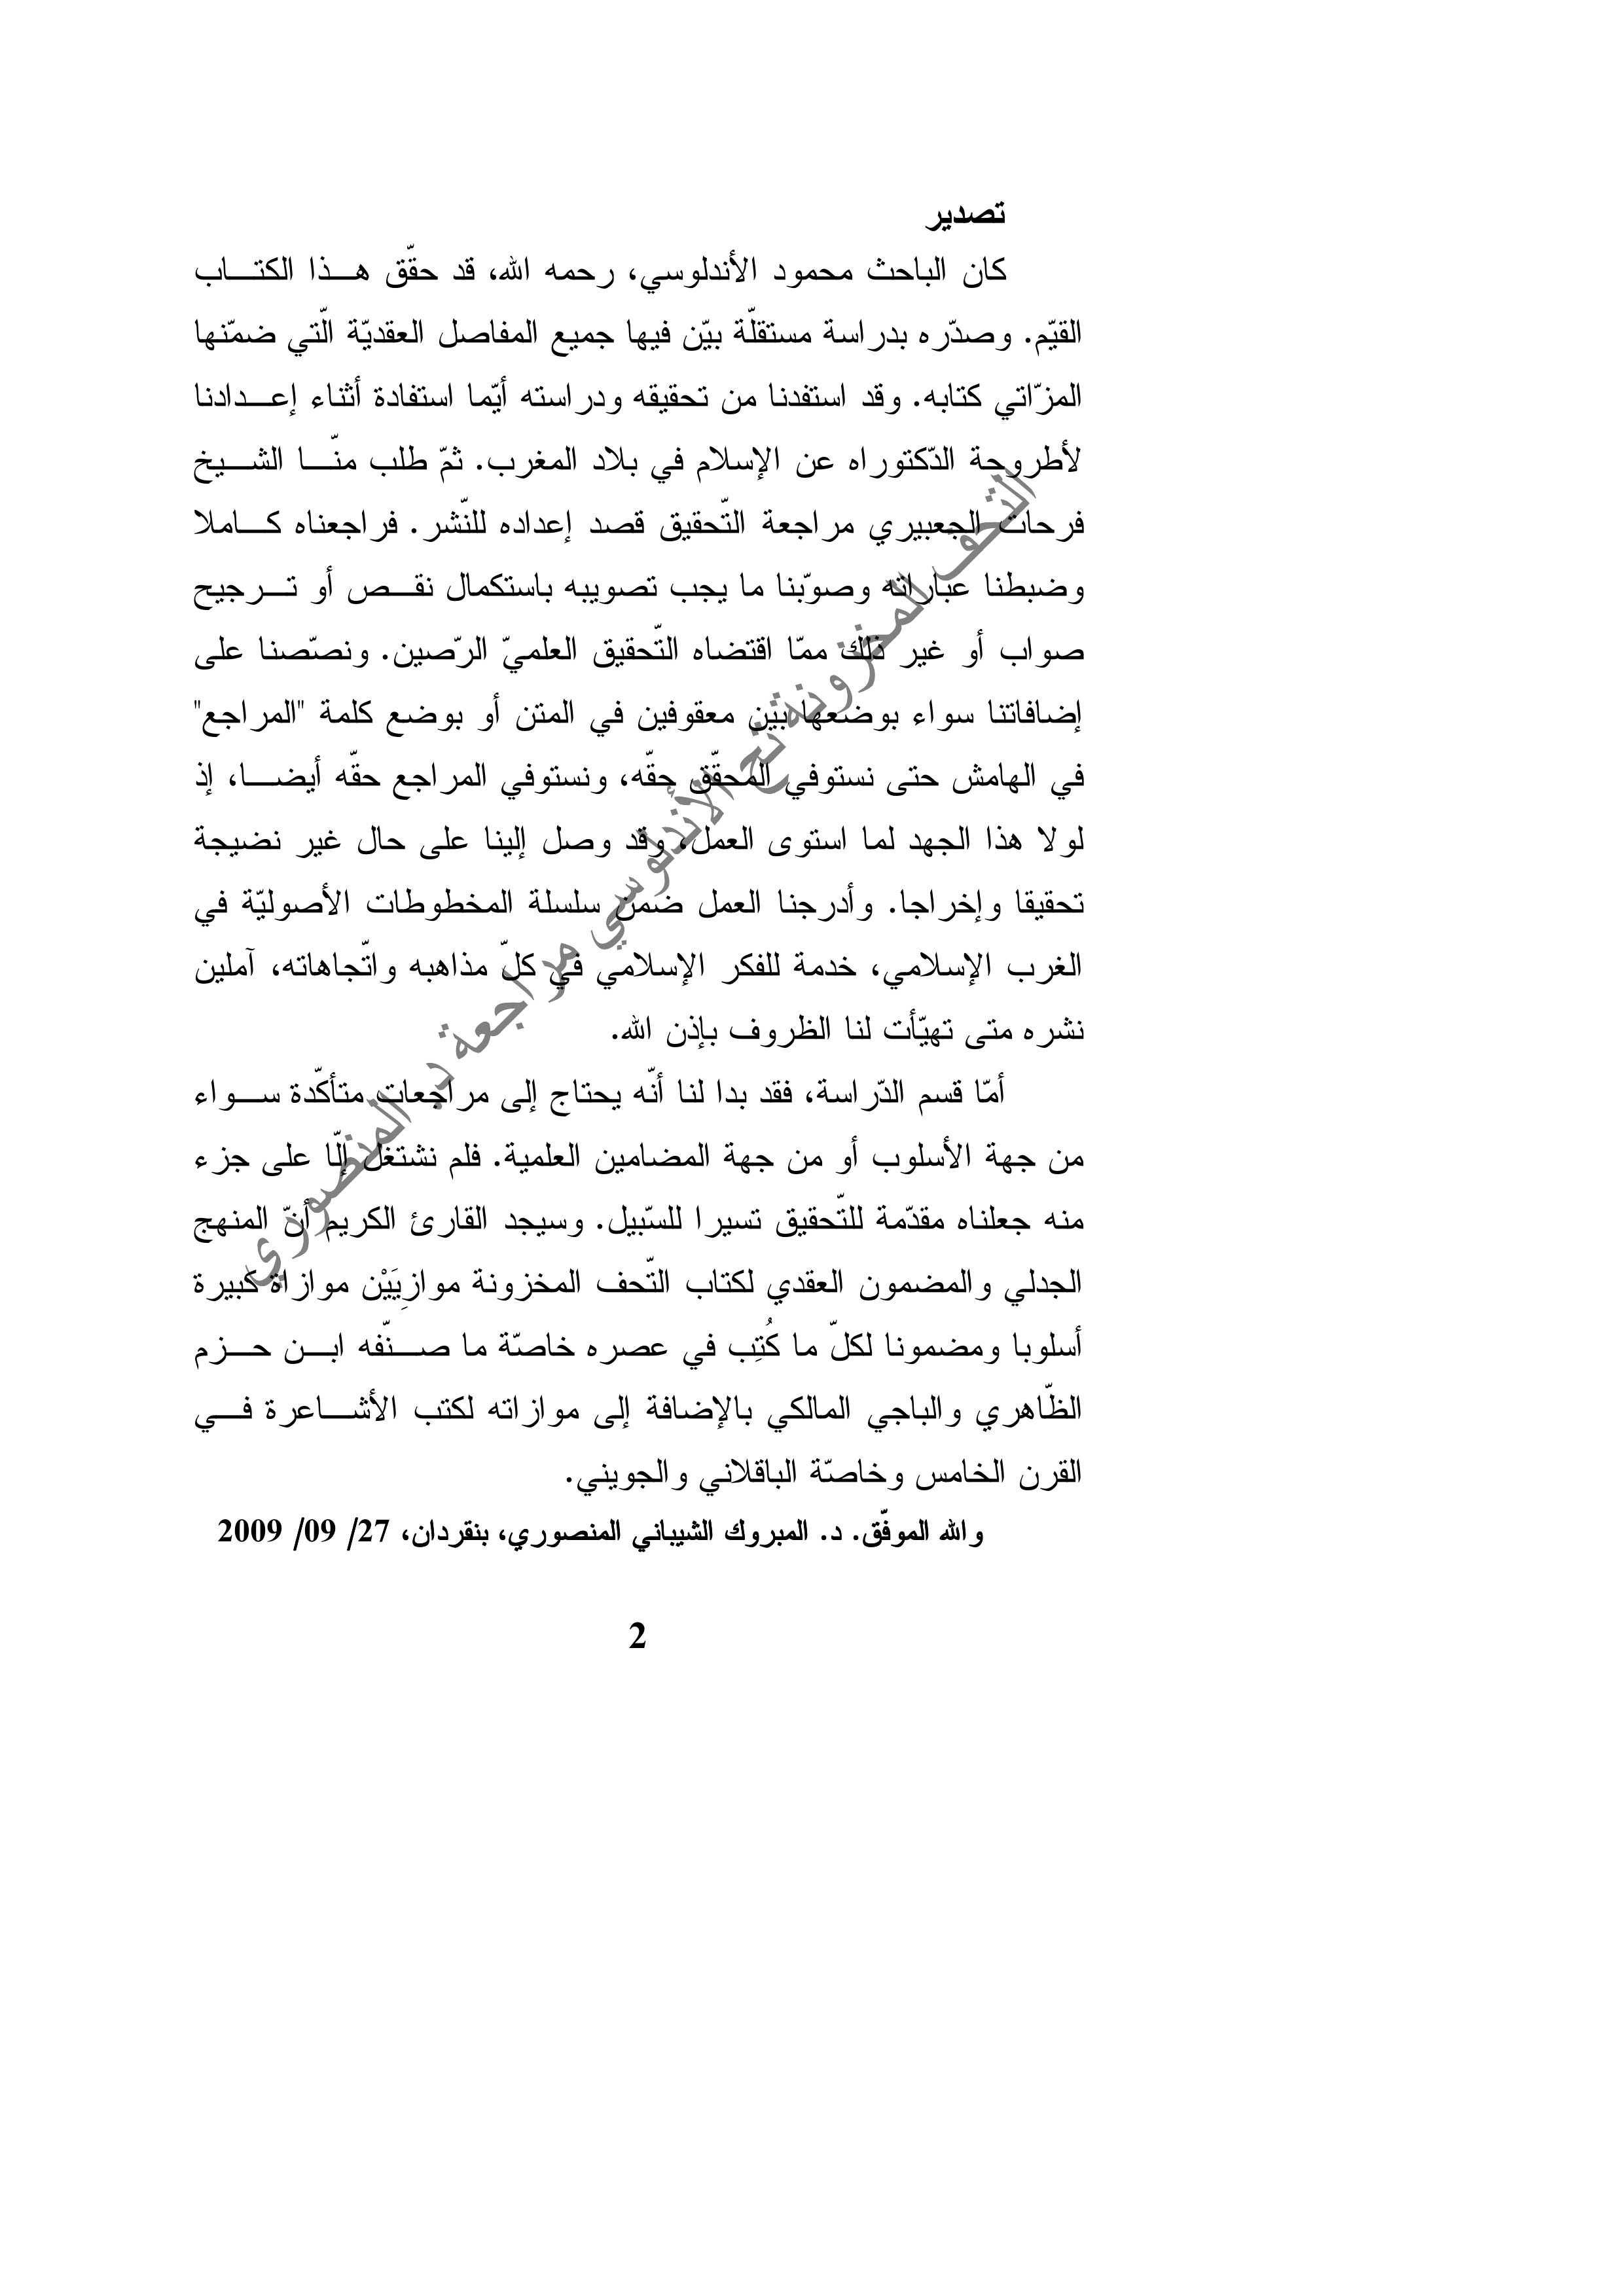 تصدير
كان الباحث محمود الأندلوسي، رحمه الله، قد حقّق هذا الكتاب
القيّم. وصدّره بدراسة مستقلّة بيّن فيها جميع المفاصل العقديّة الّتي ضمّنها
المزّاتي كتابه. وقد استفدنا من تحقيقه ودراسته أيّما استفادة أثناء إعدادنا
لأطروحة الدّكتوراه عن الإسلام في بلاد المغرب. ثمّ طلب منّا الشيخ
فرحات الجعبيري مراجعة التّحقيق قصد إعداده للنّشر. فراجعناه كاملا
وضبطنا عباراته وصوّبنا ما يجب تصويبه باستكمال نقص أو ترجيح
صواب أو غير ذلك ممّا اقتضاه التّحقيق العلميّ الرّصين. ونصّصنا على
إضافاتنا سواء بوضعها بين معقوفين في المتن أو بوضع كلمة "المراجع"
في الهامش حتى نستوفي المحقّق حقّه، ونستوفي المراجع حقّه أيضا، إذ
لولا هذا الجهد لما استوى العمل، وقد وصل إلينا على حال غير نضيجة
تحقيقا وإخراجا. وأدرجنا العمل ضمن سلسلة المخطوطات الأصوليّة في
الغرب الإسلامي، خدمة للفكر الإسلامي في كلّ مذاهبه واتّجاهاته، آملين
نشره متى تهيّأت لنا الظروف بإذن الله.
أمّا قسم الدّراسة، فقد بدا لنا أنّه يحتاج إلى مراجعات متأكّدة سواء
من جهة الأسلوب أو من جهة المضامين العلمية. فلم نشتغل إلّا على جزء
منه جعلناه مقدّمة للتّحقيق تسيرا للسّبيل. وسيجد القارئ الكريم أنّ المنهج
الجدلي والمضمون العقدي لكتاب التّحف المخزونة موازِيَيْن موازاة كبيرة
أسلوبا ومضمونا لكلّ ما كُتِب في عصره خاصّة ما صنّفه ابن حزم
الظّاهري والباجي المالكي بالإضافة إلى موازاته لكتب الأشاعرة في
القرن الخامس وخاصّة الباقلاني والجويني.
والله الموفّق. د. المبروك الشيباني المنصوري، بنقردان، 27/ 09/ 2009
2
التحف المخزونة تح الأندلوسي مراجعة د. المنصوري